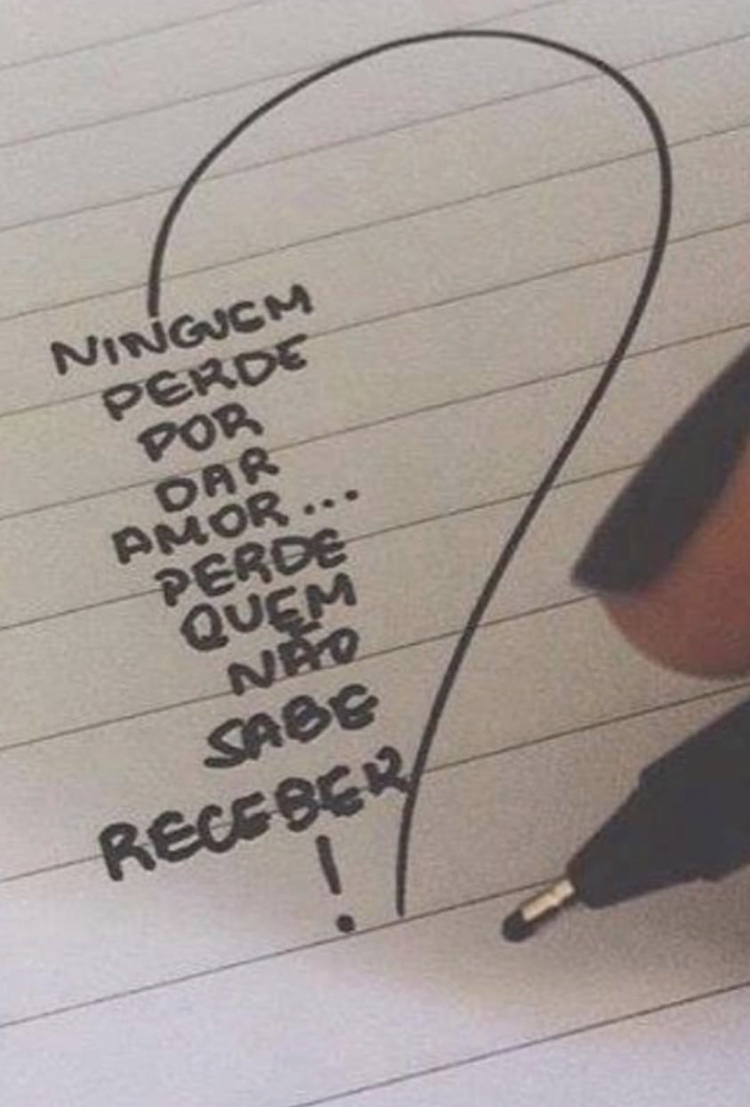 NINGUEM
PERDE
POR
DAR
AMOR...
PERDE
QUEM
NÃO
SABE
RECEBER
!